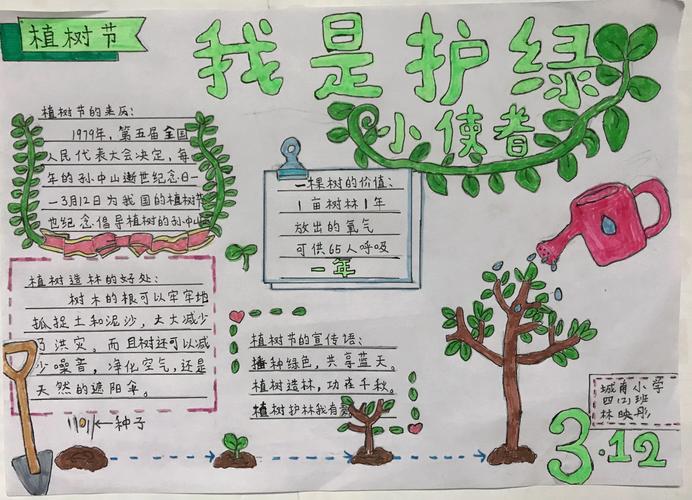 植树节
我是护绿
小使者
植树节的来历:
1979年,第五届全国
人民代表大会决定,每
年的孙中山逝世纪念日—
—3月12日为我国的植树节
也纪念倡导植树的孙中山
一棵树的价值:
1亩树林1年
放出的氧气
可供65人呼吸
一年
植树造林的好处:
树木的根可以牢牢地
抓捉土和泥沙,大大减少
了洪灾。而且树还可以减
少噪音,净化空气,还是
天然的遮阳伞。
植树节的宣传语:
播种绿色,共享蓝天。
植树造林,功在千秋。
植树护林我有责
种子
城南小学
四(2)班
林映彤
3.12